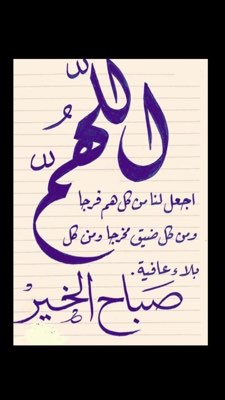 اللهم
اجعل لنا من كل هم فرجا
ومن كل ضيق مخرجا ومن كل
بلاء عافية.
صباح الخير